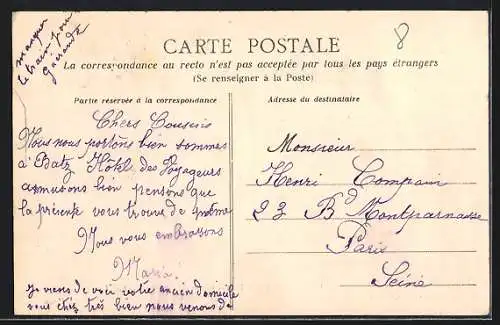 manquer
le train pour
Guérande
8
CARTE POSTALE
La correspondance au recto n'est pas acceptée par tous les pays étrangers
(Se renseigner à la Poste)
Partie réservée à la correspondance
Adresse du destinataire
Chers Cousins
Nous nous portons bien sommes
à Batz Hôtel des Voyageurs
amusons bien pensons que
la présente vous trouve de même
Nous vous embrassons
Maria.
je viens de voir votre ancien domicile
vous étiez très bien nous venons de
Monsieur
Henri Compain
23 Bd Montparnasse
Paris
Seine